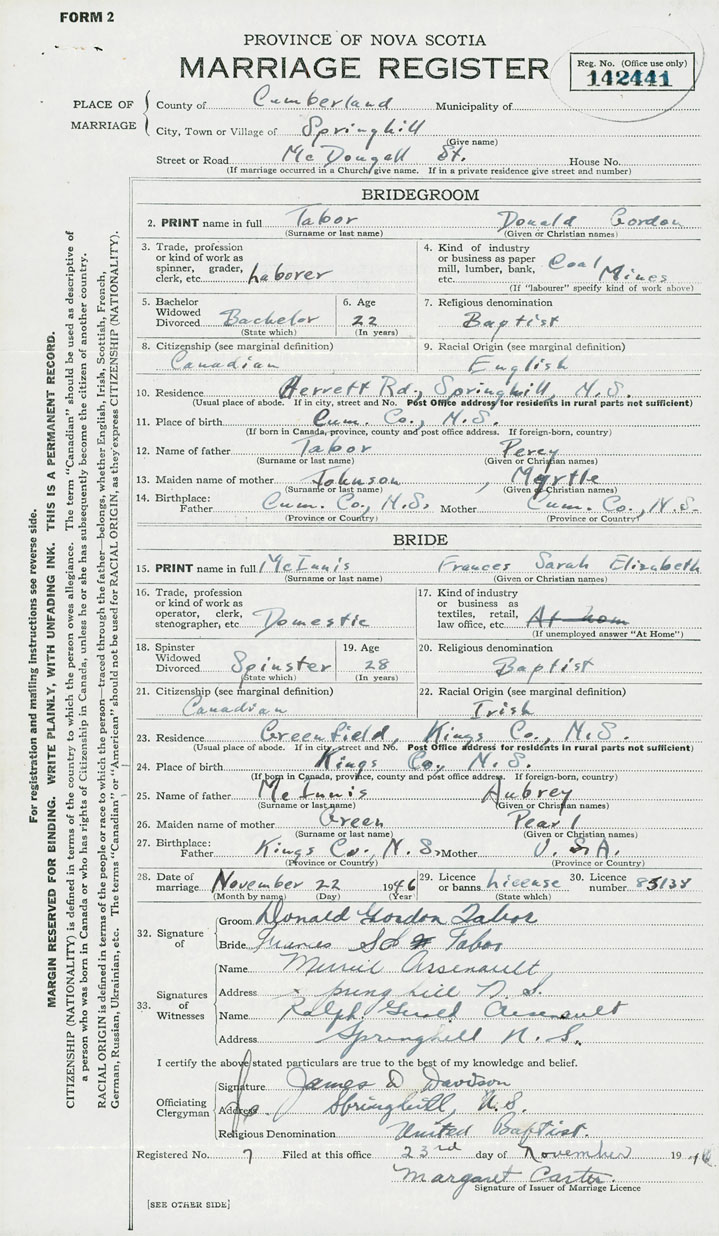 FORM 2
PROVINCE OF NOVA SCOTIA
MARRIAGE REGISTER
Reg. No. (Office use only)
142441
PLACE OF MARRIAGE
County of Cumberland Municipality of
City, Town or Village of Springhill
(Give name)
Street or Road McDougall St. House No.
(If marriage occurred in a Church, give name. If in a private residence give street and number)
BRIDEGROOM
2. PRINT name in full Tabor Donald Gordon
(Surname or last name) (Given or Christian names)
3. Trade, profession or kind of work as spinner, grader, clerk, etc. Laborer
4. Kind of industry or business as paper mill, lumber, bank, etc. Coal Mines
(If "labourer" specify kind of work above)
5. Bachelor Widowed Divorced Bachelor
(State which)
6. Age 22
(In years)
7. Religious denomination
Baptist
8. Citizenship (see marginal definition)
Canadian
9. Racial Origin (see marginal definition)
English
10. Residence Herrett Rd., Springhill, N.S.
(Usual place of abode. If in city, street and No. Post Office address for residents in rural parts not sufficient)
11. Place of birth Cum. Co., N.S.
(If born in Canada, province, county and post office address. If foreign-born, country)
12. Name of father Tabor Percy
(Surname or last name) (Given or Christian names)
13. Maiden name of mother Johnson, Myrtle
(Surname or last name) (Given or Christian names)
14. Birthplace:
Father Cum. Co., N.S. Mother Cum. Co., N.S.
(Province or Country) (Province or Country)
BRIDE
15. PRINT name in full McInnis Frances Sarah Elizabeth
(Surname or last name) (Given or Christian names)
16. Trade, profession or kind of work as operator, clerk, stenographer, etc Domestic
17. Kind of industry or business as textiles, retail, law office, etc At hom
(If unemployed answer "At Home")
18. Spinster Widowed Divorced Spinster
(State which)
19. Age 28
(In years)
20. Religious denomination
Baptist
21. Citizenship (see marginal definition)
Canadian
22. Racial Origin (see marginal definition)
Irish
23. Residence Greenfield, Kings Co., N.S.
(Usual place of abode. If in city, street and No. Post Office address for residents in rural parts not sufficient)
24. Place of birth Kings Co., N.S.
(If born in Canada, province, county and post office address. If foreign-born, country)
25. Name of father McInnis Aubrey
(Surname or last name) (Given or Christian names)
26. Maiden name of mother Green Pearl
(Surname or last name) (Given or Christian names)
27. Birthplace:
Father Kings Co., N.S. Mother U.S.A.
(Province or Country) (Province or Country)
28. Date of marriage November 22 1946
(Month by name) (Day) (Year)
29. Licence or banns License
(State which)
30. Licence number
32. Signature of
Groom Donald Gordon Tabor
Bride Tabor
33. Signatures of Witnesses
Name Arsenault
Address Springhill N.S.
Name Ralph Gerald Arsenault
Address Springhill N.S.
I certify the above stated particulars are true to the best of my knowledge and belief.
Officiating Clergyman
Signature James D Davidson
Address Springhill, N.S.
Religious Denomination United Baptist.
Registered No. 7 Filed at this office 23rd day of November 1946
Margaret Carter
Signature of Issuer of Marriage Licence
[SEE OTHER SIDE]
For registration and mailing instructions see reverse side.
MARGIN RESERVED FOR BINDING. WRITE PLAINLY, WITH UNFADING INK. THIS IS A PERMANENT RECORD.
CITIZENSHIP (NATIONALITY) is defined in terms of the country to which the person owes allegiance. The term "Canadian" should be used as descriptive of
a person who was born in Canada or who has rights of Citizenship in Canada, unless he or she has subsequently become the citizen of another country.
RACIAL ORIGIN is defined in terms of the people or race to which the person—traced through the father—belongs, whether English, Irish, Scottish, French,
German, Russian, Ukrainian, etc. The terms "Canadian" or "American" should not be used for RACIAL ORIGIN, as they express CITIZENSHIP (NATIONALITY).